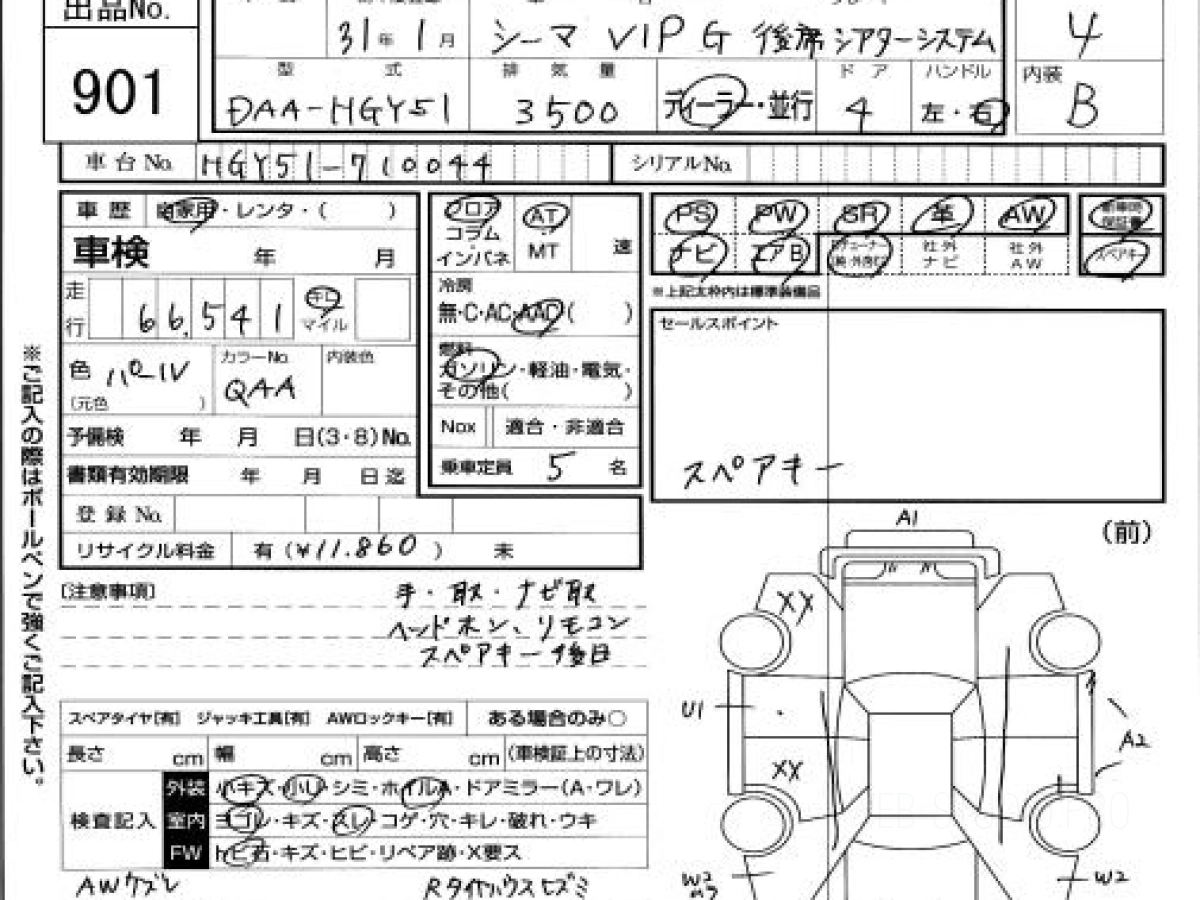 出品No.
901
31年 1月
シーマ VIP G 後席シアターシステム
4
型式
DAA-HGY51
排気量
3500
ディーラー・並行
ドア
4
ハンドル
左・右
内装
B
車台No. HGY51-710044
シリアルNo.
車歴 自家用・レンタ・( )
車検 年 月
走行 66,541 キロ マイル
色 パールIV
(元色 )
カラーNo.
QAA
内装色
予備検 年 月 日(3・8)No.
書類有効期限 年 月 日迄
登録No.
リサイクル料金 有(¥11.860) 未
フロア
コラム
インパネ
AT
MT
速
冷房
無・C・AC・AAC( )
燃料
ガソリン・軽油・電気・
その他( )
Nox 適合・非適合
乗車定員 5 名
PS PW SR 革 AW
新車時保証書
ナビ エアB
社外ナビ
社外AW
スペアキー
※上記太枠内は標準装備品
セールスポイント
スペアキー
※ご記入の際はボールペンで強くご記入下さい。
[注意事項]
手・取・ナビ取
ヘッドホン、リモコン
スペアキー後日
スペアタイヤ[有] ジャッキ工具[有] AWロックキー[有] ある場合のみ○
長さ cm 幅 cm 高さ cm (車検証上の寸法)
検査記入
外装 小キズ・小U・シミ・ホイルA・ドアミラー(A・ワレ)
室内 ヨゴレ・キズ・スレ・コゲ・穴・キレ・破れ・ウキ
FW トビ石・キズ・ヒビ・リペア跡・X要ス
AWケズレ
Rタイヤハウスヒズミ
(前)
A1
XX
U1
A2
XX
W2
W2